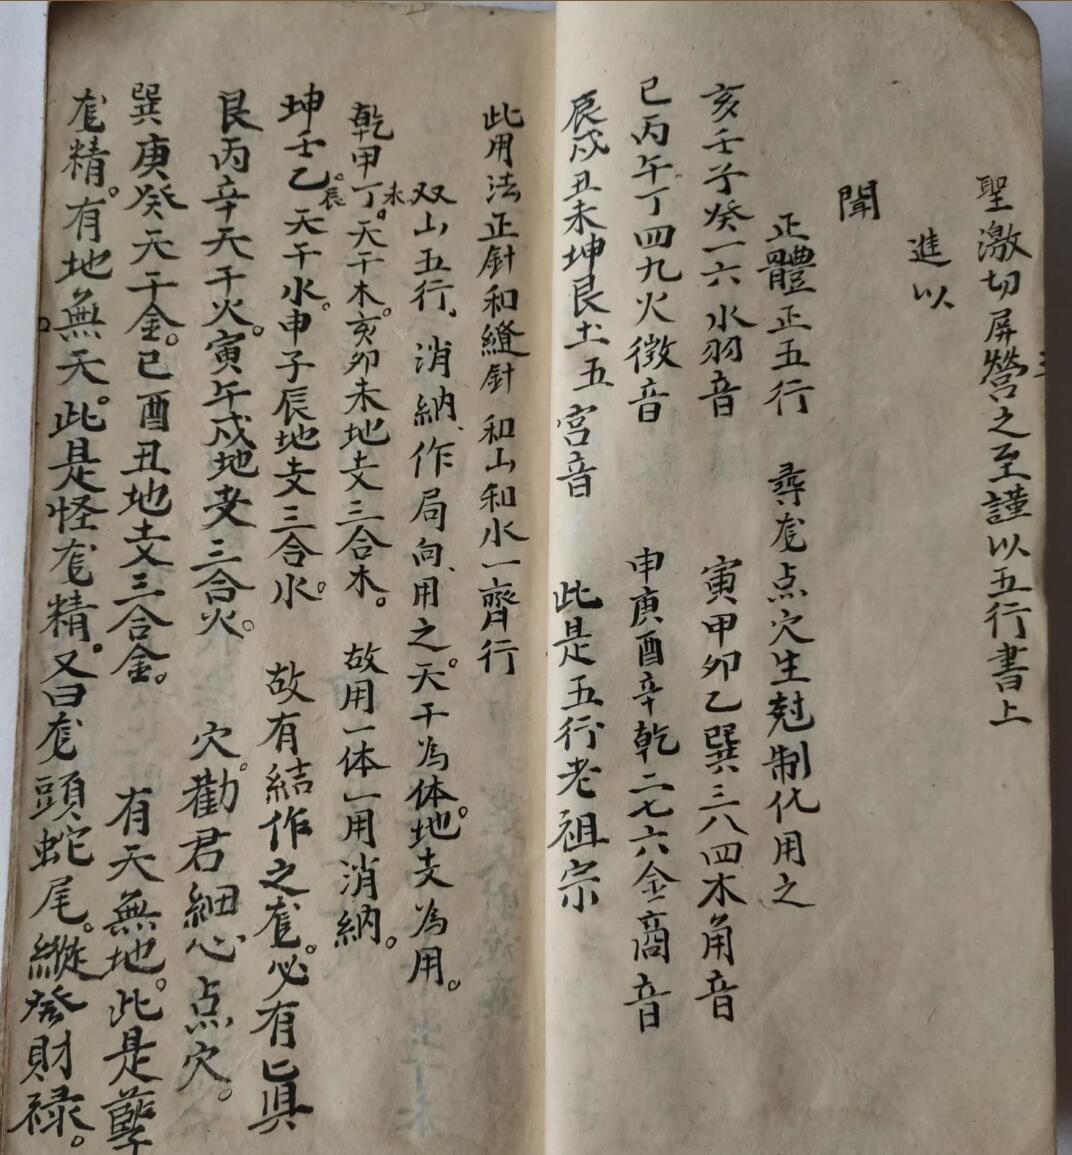 聖激切屏營之至謹以五行書上
進以
聞
正體正五行 尋龙点穴生尅制化用之
亥壬子癸一六水羽音 寅甲卯乙巽三八四木角音
巳丙午丁四九火徵音 申庚酉辛乾二七六金商音
辰戌丑未坤艮土五宫音 此是五行老祖宗
此用法正針和縫針 和山和水一齊行
双山五行、消納、作局向、用之。天干為体。地支為用。
乾甲丁未。天干木。亥卯未地支三合木。 故用一体一用消納。
坤壬乙辰。天干水。申子辰地支三合水。 故有結作之龙。必有真
艮丙辛天干火。寅午戌地支三合火。 穴。勸君細心点穴。
巽庚癸天干金。巳酉丑地支三合金。 有天無地。此是孽
龙精。有地無天。此是怪龙精。又曰龙頭蛇尾。縱發財禄。